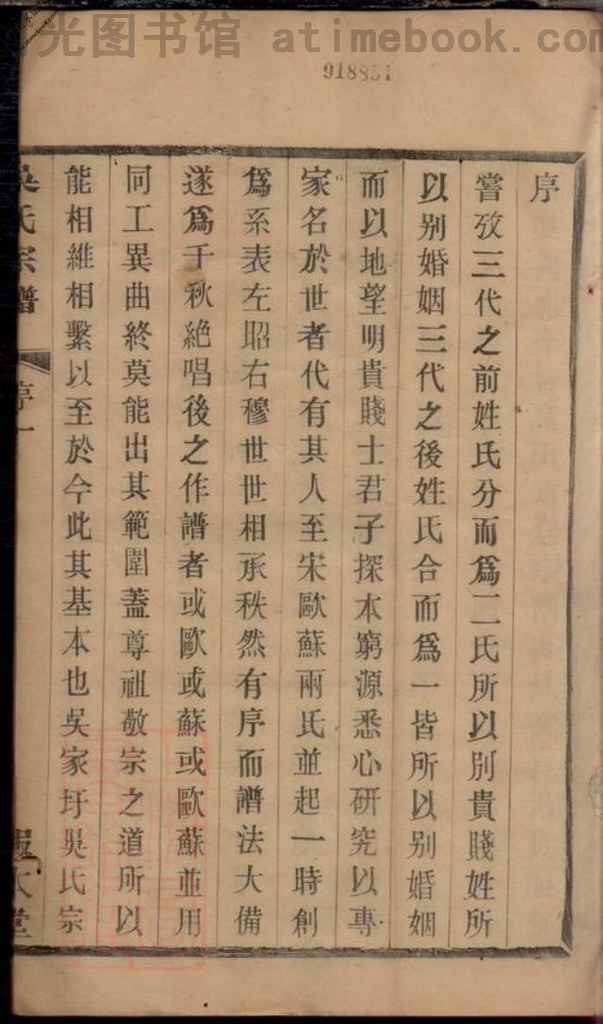 光图书馆 atimebook.com
918851
序
嘗攷三代之前姓氏分而爲二氏所以别貴賤姓所
以别婚姻三代之後姓氏合而爲一皆所以别婚姻
而以地望明貴賤士君子探本窮源悉心研究以專
家名於世者代有其人至宋歐蘇兩氏並起一時創
爲系表左昭右穆世世相承秩然有序而譜法大備
遂爲千秋絶唱後之作譜者或歐或蘇或歐蘇並用
同工異曲終莫能出其範圍蓋尊祖敬宗之道所以
能相維相繫以至於今此其基本也吳家圩吳氏宗
吳氏宗譜 序一